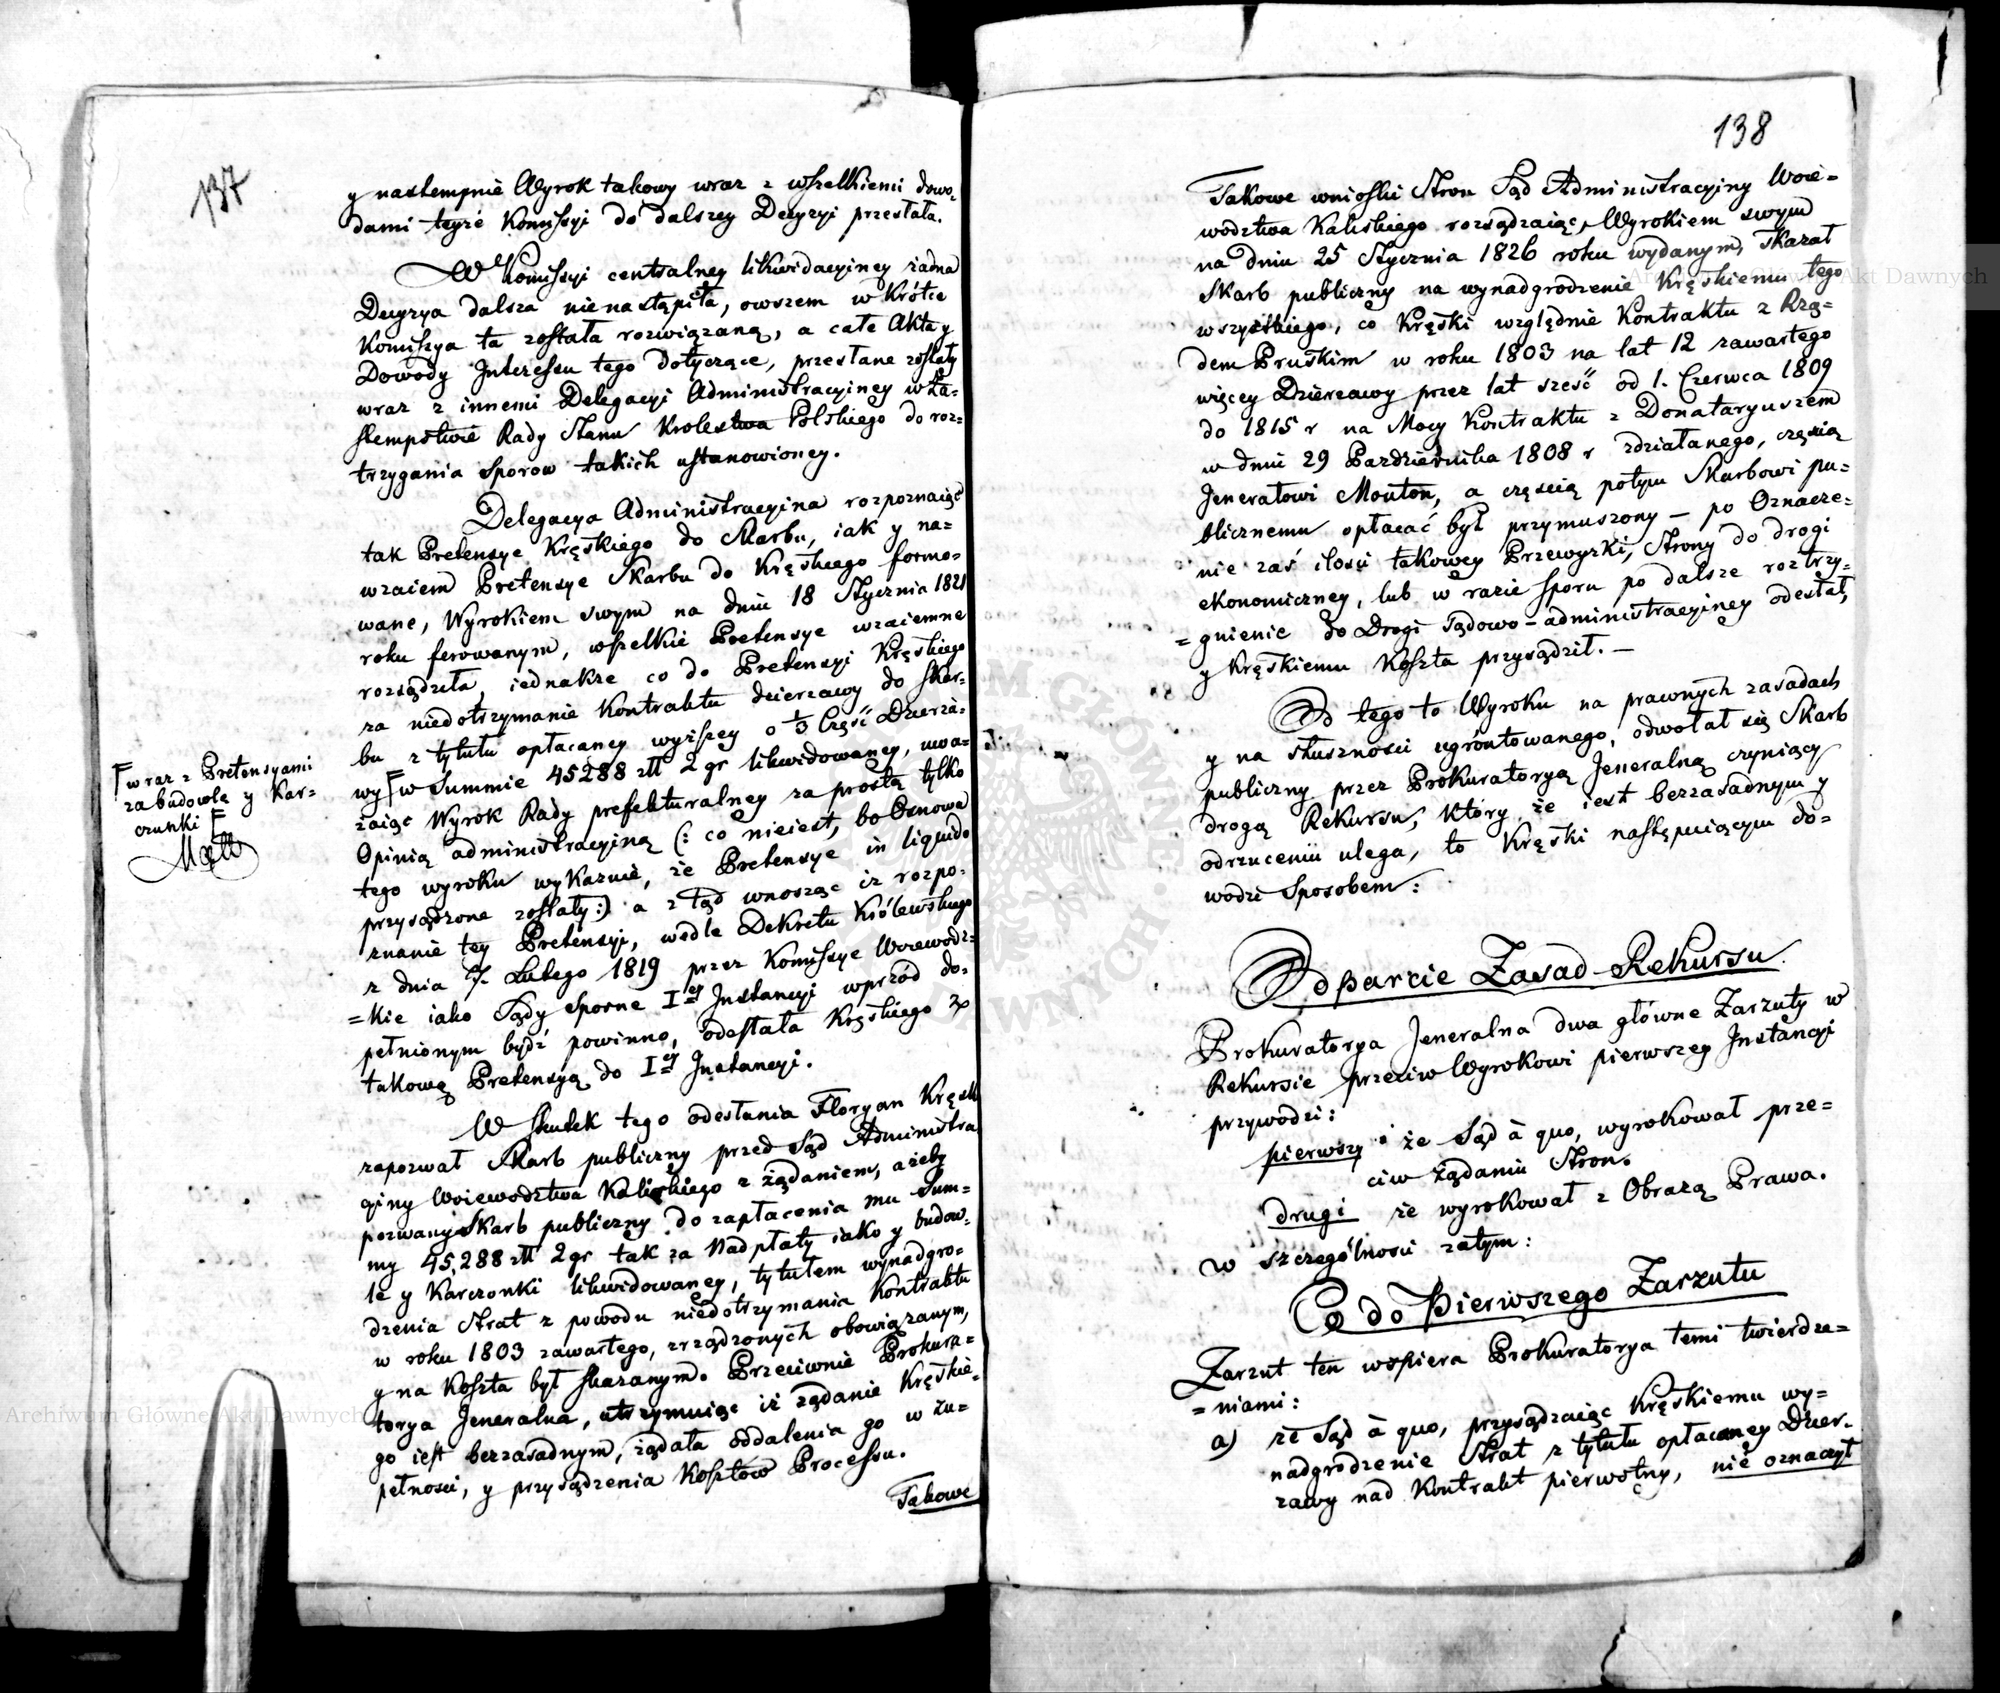 137
y nastempnie Wyrok takowy wraz z wszelkiemi dowo-
dami teyże Kommissyi do dalszey Decyzyi przesłała.
W Kommissyi centralney likwidacyiney żadna
Decyzya dalsza nie nastąpiła, owszem w krótce
Kommissya ta została rozwiązaną, a całe Akta y
Dowody Interessu tego dotyczące, przesłane zostały
wraz z innemi Delegacyi Administracyiney w Za-
stempstwie Rady Stanu Krolestwa Polskiego do roz-
trzygania sporow takich ustanowioney.
Delegacya Administracyina rozpoznaiąc
tak Pretensye Kręskiego do Skarbu, iak y na-
wzaiem Pretensye Skarbu do Kręskiego formo-
wane, Wyrokiem swym na dniu 18 Stycznia 1821
roku ferowanym, wszelkie Pretensye wzaiemne
rozsądziła, iednakże co do Pretensyi Kręskiego
za niedotrzymanie Kontraktu dzierzawy do Skar-
bu z tytułu opłacaney wyższey o 1/3 Część Dzierża-
wy F w Summie 45288 złł 2 gr likwidowaney, uwa-
żaiąc Wyrok Rady prefekturalney za prostą tylko
Opinią administracyiną (: co nieiest, bo Osnowa
tego wyroku wykazuie, że Pretensye in liquido
przysądzone zostały :) a z tąd wnosząc iż rozpo-
znanie tey Pretensyi, wedle Dekretu Królewskiego
z dnia 7. Lutego 1819 przez Kommissye Woiewodz-
=kie iako Sądy sporne Iey Instancyi wprzód do-
pełnionym bydź powinno, odesłała Kręskiego z
takową Pretensyą do Iey Instancyi.
W Skutek tego odesłania Floryan Kręski
zapozwał Skarb publiczny przed Sąd Administra
cyiny Woiewodztwa Kaliskiego z żądaniem, ażeby
pozwany Skarb publiczny do zapłacenia mu Sum-
my 45,288 złł 2 gr tak za Nadpłaty iako y budow-
le y Karczonki likwidowaney, tytułem wynadgro-
dzenia Strat z powodu niedotrzymania Kontraktu
w roku 1803 zawartego, zrządzonych obowiązanym,
y na Koszta był skazanym. Przeciwnie Prokura-
torya Jeneralna, utrzymuiąc iż żądanie Kręskie-
go iest bezzasadnym, żądała oddalenia go w zu-
pełności, y przysądzenia Kosztów Processu.
Takowe
F wraz z Pretensyami
za budowlę y Kar-
czunki F
138
Takowe wnioski Stron Sąd Administracyiny Woie-
wództwa Kaliskiego rozsądzaiąc, Wyrokiem swym
na dniu 25 Stycznia 1826 roku wydanym, Skazał
Skarb publiczny na wynadgrodzenie Kręskiemu tego
wszystkiego, co Kręski względnie Kontraktu z Rzą-
dem Pruskim w roku 1803 na lat 12 zawartego
więcey Dzierzawy przez lat sześć od 1. Czerwca 1809
do 1815 r na Mocy Kontraktu z Donataryuszem
w dniu 29 Pazdziernika 1808 r zdziałanego, częścią
Jenerałowi Mouton, a częścią potym Skarbowi pu-
blicznemu opłacać był przymuszony — po Oznacze-
nie zaś ilości takowey Przewyżki, Strony do drogi
ekonomiczney, lub w razie sporu po dalsze roztrzy-
=gnienie do Drogi sądowo-administracyiney odesłał,
y Kręskiemu Koszta przysądził. —
Od tego to Wyroku na prawnych zasadach
y na słuszności ugruntowanego, odwołał się Skarb
publiczny przez Prokuratoryą Jeneralną czyniący
drogą Rekursu, który że iest bezzasadnym y
odrzuceniu ulega, to Kręski następuiącym do-
wodzi Sposobem:
Odparcie Zasad Rekursu.
Prokuratorya Jeneralna dwa główne Zarzuty w
Rekursie przeciw Wyrokowi pierwszey Instancyi
przywodzi:
pierwszy że Sąd à quo, wyrokował prze-
ciw żądaniu Stron.
drugi że wyrokował z Obrazą Prawa.
w szczególności zatym:
Co do Pierwszego Zarzutu
Zarzut ten wspiera Prokuratorya temi twierdze-
=niami:
a) że Sąd à quo, przysądzaiąc Kręskiemu wy-
nadgrodzenie Strat z tytułu opłacaney Dzier-
zawy nad Kontrakt pierwotny, nie oznaczył